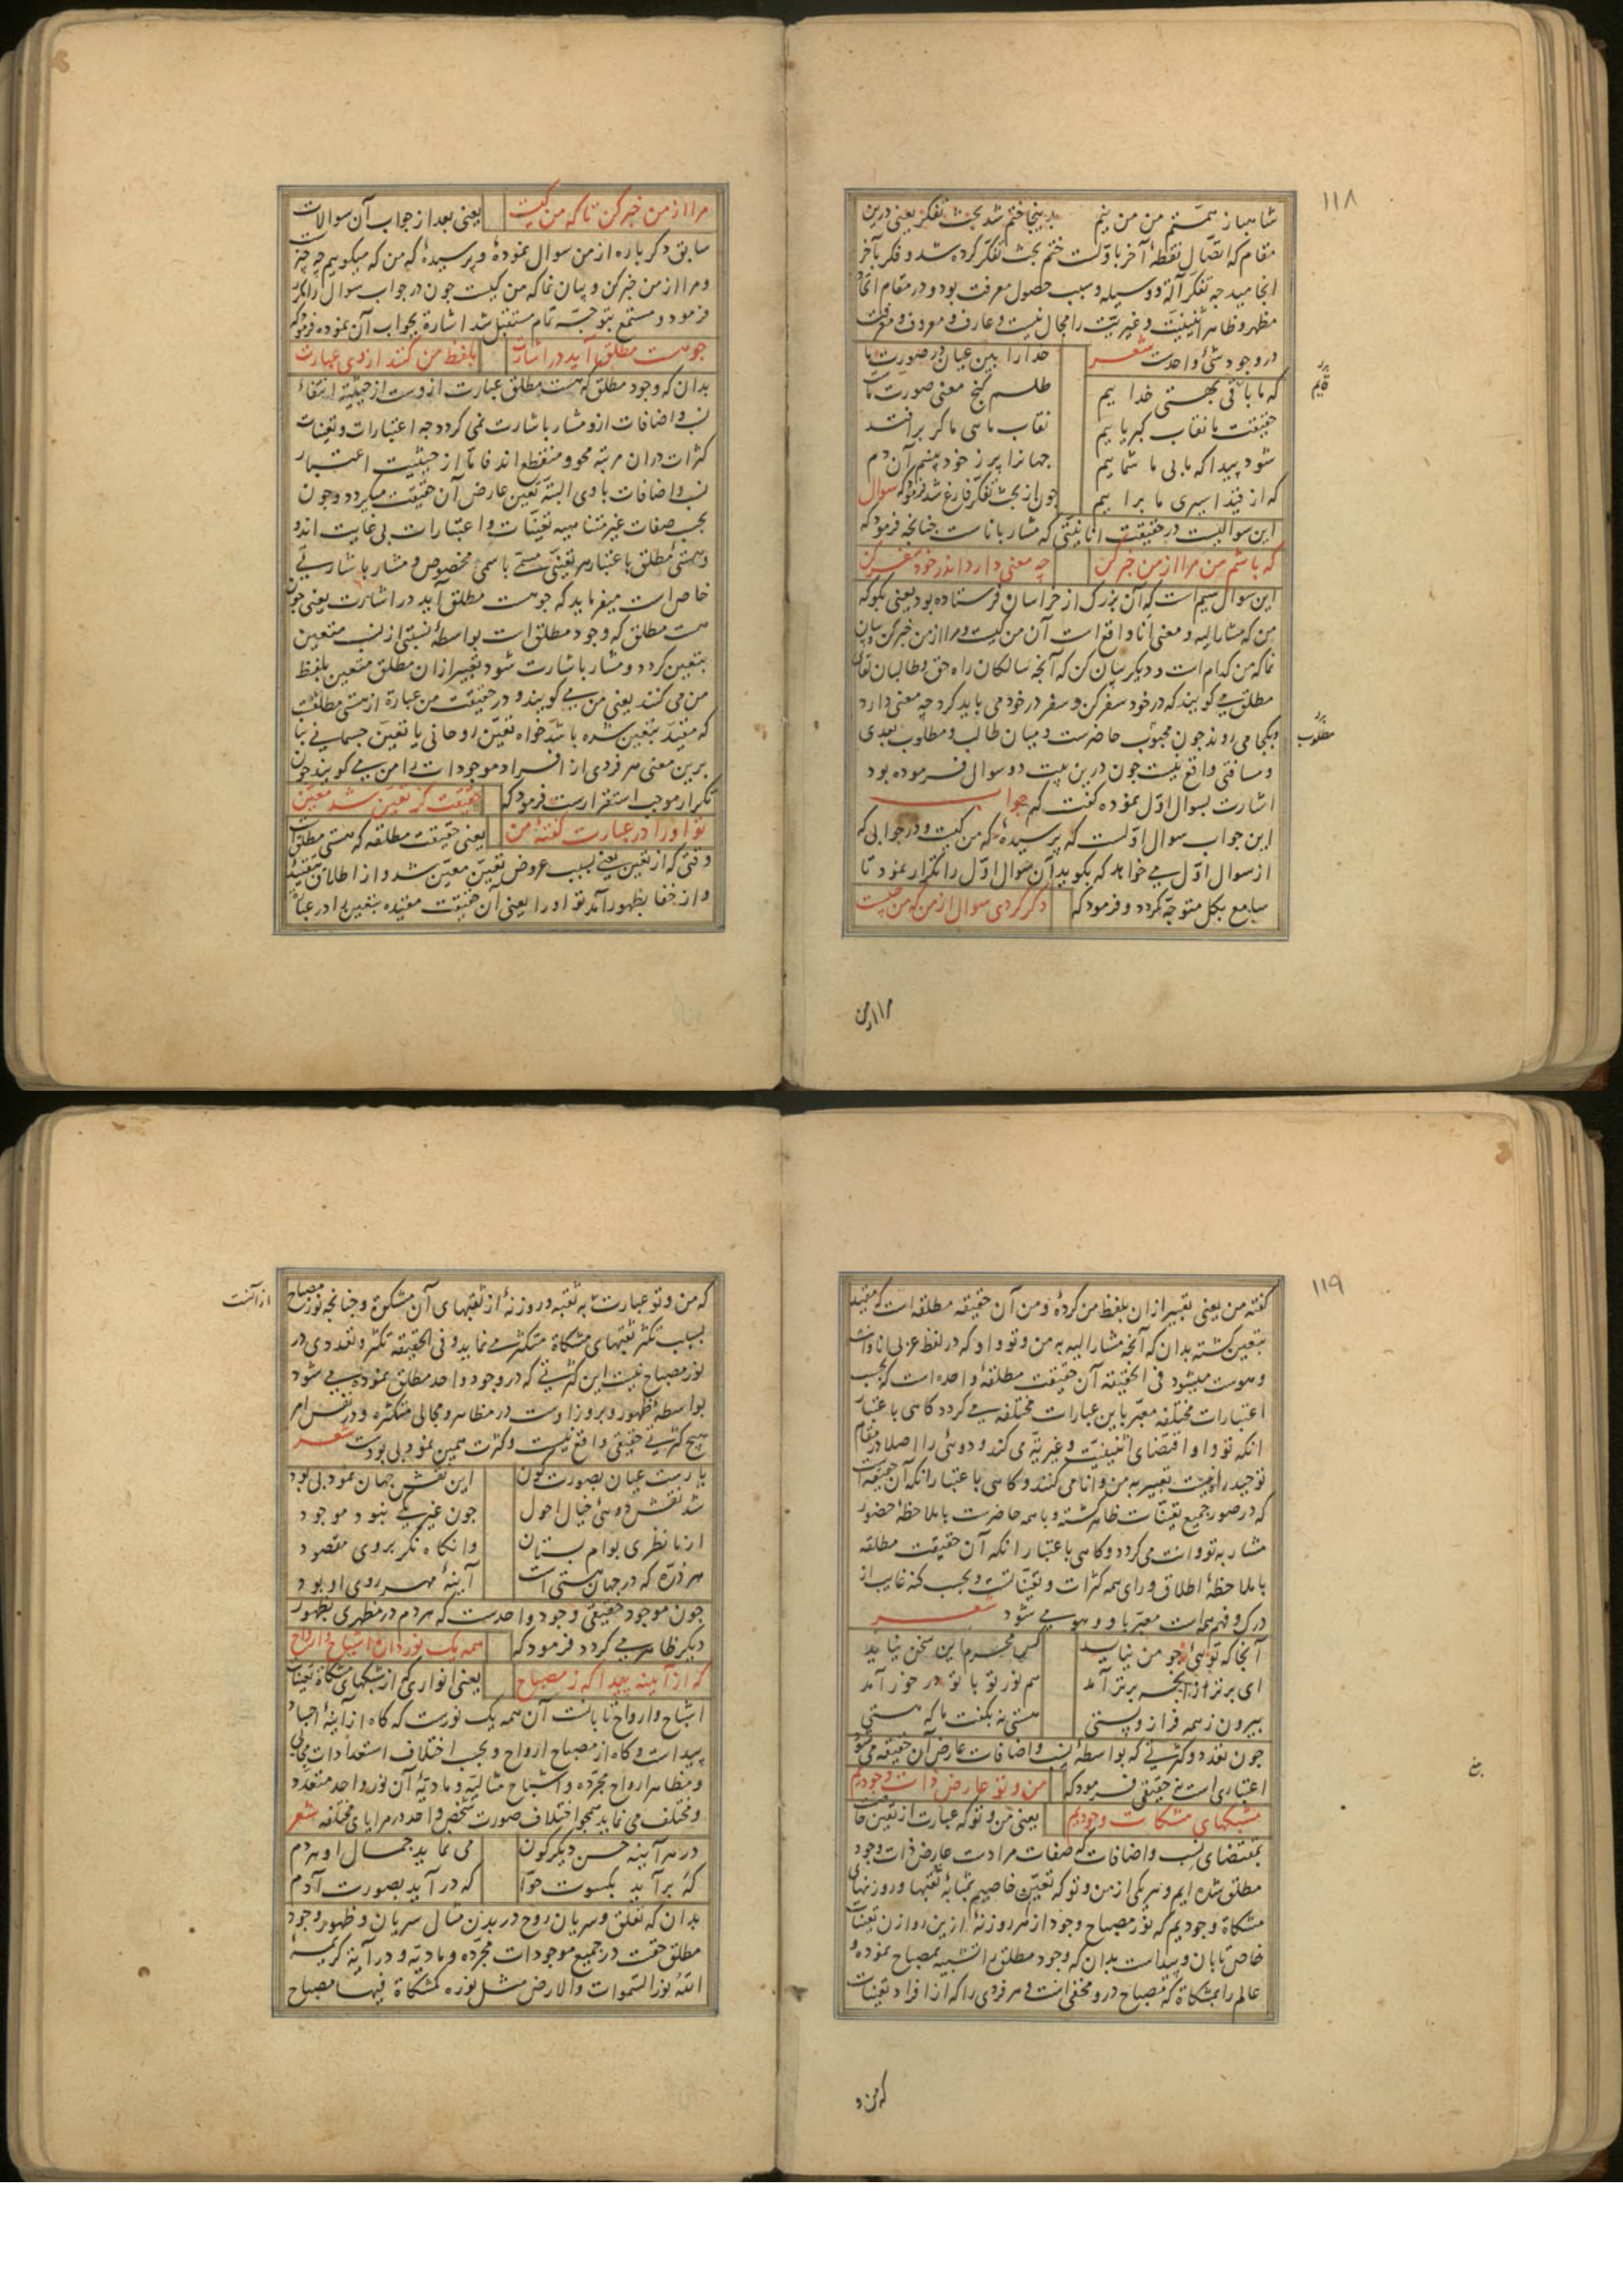 ۱۱۸
شاهباز همّتم من من نیم بدینجا ختم شد بحث تفکر یعنی درین
مقام که اتصال نقطهٔ آخر باوّلست ختم بحث تفکّر کرده شد و فکر بآخر
انجامید چه تفکر آلة و وسیله و سبب حصول معرفت بود و در مقام اتحاد
مظهر و ظاهر اثنینیّت و غیریّت را مجال نیست و عارف و معروف و معرفت
در وجود شیٔ واحدست شعر خدارا ببین عیان در صورت ما
که ما باقی بهستی خداییم طلسم گنج معنی صورت ماست
حقیقت با نقاب کبریاییم نقاب ماسی ما گر برافتد
شود پیدا که مابی ما شماییم جهانرا پر ز خود بینم آن دم
که از قید اسیری ما براییم چون از بحث تفکّر فارغ شد فرمود که سوال
این سوالیست در حقیقت انانیّتی که مشار باناست چنانچه فرمود که
که باشم من مرا از من خبر کن چه معنی دارد اندر خود سفر کن
این سوال سیم است که آن بزرگ از خراسان فرستاده بود یعنی بگو که
من که مشار الیه و معنی انا واقع است آن من کیست و مرا از من خبر کن و بیان
نما که من کدام است و دیگر بیان کن که آنچه سالکان راه حق و طالبان لقای
مطلق می گویند که در خود سفر کن و سفر در خود می باید کرد چه معنی دارد
و بکجا می روند چون محبوب حاضرست و میان طالب و مطلوب بعدی
و مسافتی واقع نیست چون درین بیت دو سوال فرموده بود
اشارت بسوال اوّل نموده گفت که جواب
این جواب سوال اوّلست که پرسیدهٔ که من کیست و در جوابی که
از سوال اوّل می خواهد که بگوید آن سوال اوّل را تکرار نمود تا
سامع بکل متوجّه گردد و فرمود که دگر کردی سوال از من که من چیست
مطلوب
مرا از من
مرا از من خبر کن تا که من کیست یعنی بعد از جواب آن سوالات
سابق دگر باره از من سوال نمودهٔ و پرسیدهٔ که من که میگوییم چه چیز
و مرا از من خبر کن و بیان نما که من کیست چون در جواب سوال را مکرر
فرمود و مستمع بتوجّه تمام مستقبل شد اشارة بجواب آن نموده فرمود که
چو هست مطلق آید در اشارت بلفظ من کنند از وی عبارت
بدان که وجود مطلق که هست مطلق عبارت ازوست از حیثیّة انتفاء
نسب و اضافات ازو مشار باشارت نمی گردد چه اعتبارات و تعیّنات
کثرات دران مرتبه محو و منقطع اند فامّا از حیثیّت اعتبار
نسب و اضافات باوی البتّه تعیّن عارض آن حقیقت میگردد و چون
بحسب صفات غیر متناهیه تعیّنات و اعتبارات بی غایت اند و
هستی مطلق باعتبار هر تعیّنی مسمّی باسمی مخصوص و مشار باشارتی
خاص است میفرماید که چو هست مطلق آید در اشارت یعنی چون
هست مطلق که وجود مطلق است بواسطهٔ نسبتی از نسب متعین
بتعین گردد و مشار باشارت شود تعبیر ازان مطلق متعین بلفظ
من می کنند یعنی من می گویند و در حقیقت من عبارة از هستی مطلقست
که مقیّد بتعین شده باشد خواه تعیّن روحانی یا تعیّن جسمانی بنا
برین معنی هر فردی از افراد موجودات را من می گویند چون
تکرار موجب استقرارست فرمود که حقیقت کز تعین شد معیّن
تو او را در عبارت گفتهٔ من یعنی حقیقت مطلقه که هستی مطلق است
وقتی که از تعین یعنی بسبب عروض تعیّن معیّن شد و از اطلاق بتقیید
و از خفا بظهور آمد تو او را یعنی آن حقیقت مقیّده بتعین را در عبارت
۱۱۹
گفتهٔ من یعنی تعبیر ازان بلفظ من کردهٔ و من آن حقیقه مطلقه است که مقید
بتعین گشته بدان که آنچه مشار الیه به من و تو و او که در لفظ عربی انا و انت
و هوست میشود فی الحقیقه آن حقیقت مطلقهٔ واحده است که بحسب
اعتبارات مختلفه معبّر باین عبارات مختلفه می گردد گاهی باعتبار
انکه تو و او اقتضای اثنینیّت و غیریّة می کند و دوئی را اصلا در مقام
توحید راه نیست تعبیر به من و انا می کنند و گاهی باعتبار انکه آن حقیقت
که در صور جمیع تعیّنات ظاهر گشته و با همه حاضرست باملاحظهٔ حضور
مشار به تو و انت می گردد و گاهی باعتبار انکه آن حقیقت مطلقه
باملاحظهٔ اطلاق ورای همه کثرات و تعیّناتست و بحسب کنه غایب از
درک و فهم همه است معبّر باو و هو می شود شعر
آنجا که تویی چو من نباید کس محرم این سخن نباید
ای برتر از انچه برتر آمد هم نور تو با تو در خور آمد
بیرون ز همه فراز و پستی هستی نه بگفت ما که هستی
چون تعدد و کثرتی که بواسطهٔ نسب و اضافات عارض آن حقیقه می شود
اعتباری است نه حقیقی فرمود که من و تو عارض ذات وجودیم
مشبکهای مشکات وجودیم یعنی من و تو که عبارت از تعین خاصست
بمقتضای نسب و اضافات که صفات مرادست عارض ذات وجود
مطلق شده ایم و هر یکی از من و تو که تعیّن خاصیم بمثابهٔ ثقبها و روزنهای
مشکاة وجودیم که نور مصباح وجود از هر روزنهٔ ازین روازن تعینات
خاص تابان و پیداست بدان که وجود مطلق را تشبیه بمصباح نموده و
عالم را بمشکاة که مصباح درو مخفی است و هر فردی را که از افراد تعیّنات
که من و
که من و تو عبارتست به ثقبه و روزنهٔ از ثقبهای آن مشکوة و چنانچه نور مصباح
بسبب تکثر ثقبهای مشکاة متکثر می نماید و فی الحقیقه تکثر و تعددی در
نور مصباح نیست این کثرتی که در وجود واحد مطلق نموده می شود
بواسطهٔ ظهور و بروز اوست در مظاهر و مجالی متکثره و در نفس امر
هیچ کثرتی حقیقی واقع نیست و کثرت همین نمود بی بودست شعر
یارست عیان بصورت کون این نقش جهان نمود بی بود
شد نقش دوئی خیال احول چون غیر یکی نبود موجود
از ما نظری بوام بستان وانگاه نگر بروی مقصود
هر ذرّه که در جهان هستی است آیینهٔ مهر روی او بود
چون موجود حقیقی وجود واحدست که هر دم در مظهری بظهور
دیگر ظاهر می گردد فرمود که همه یک نور دان اشباح و ارواح
که از آیینه پیدا گه ز مصباح یعنی انواری که از مشبکهای مشکاة تعینات
اشباح و ارواح تابانست آن همه یک نورست که گاه از آیینهٔ اجساد
پیداست و گاه از مصباح ارواح و بحسب اختلاف استعدادات مجالی
و مظاهر ارواح مجرّده و اشباح مثالیّه و مادیّهٔ آن نور واحد متعدّد
و مختلف می نماید همچو اختلاف صورت شخص واحد در مرایای مختلفه شعر
در هر آیینه حسن دیگرگون می نماید جمال او هر دم
گه برآید بکسوت حوّا گه درآید بصورت آدم
بدان که تعلق و سریان روح در بدن مثال سریان و ظهور وجود
مطلق حقست در جمیع موجودات مجرّده و مادیّه و در آیهٔ کریمهٔ
اللّه نور السّموات والارض مثل نوره کمشکاة فیها مصباح